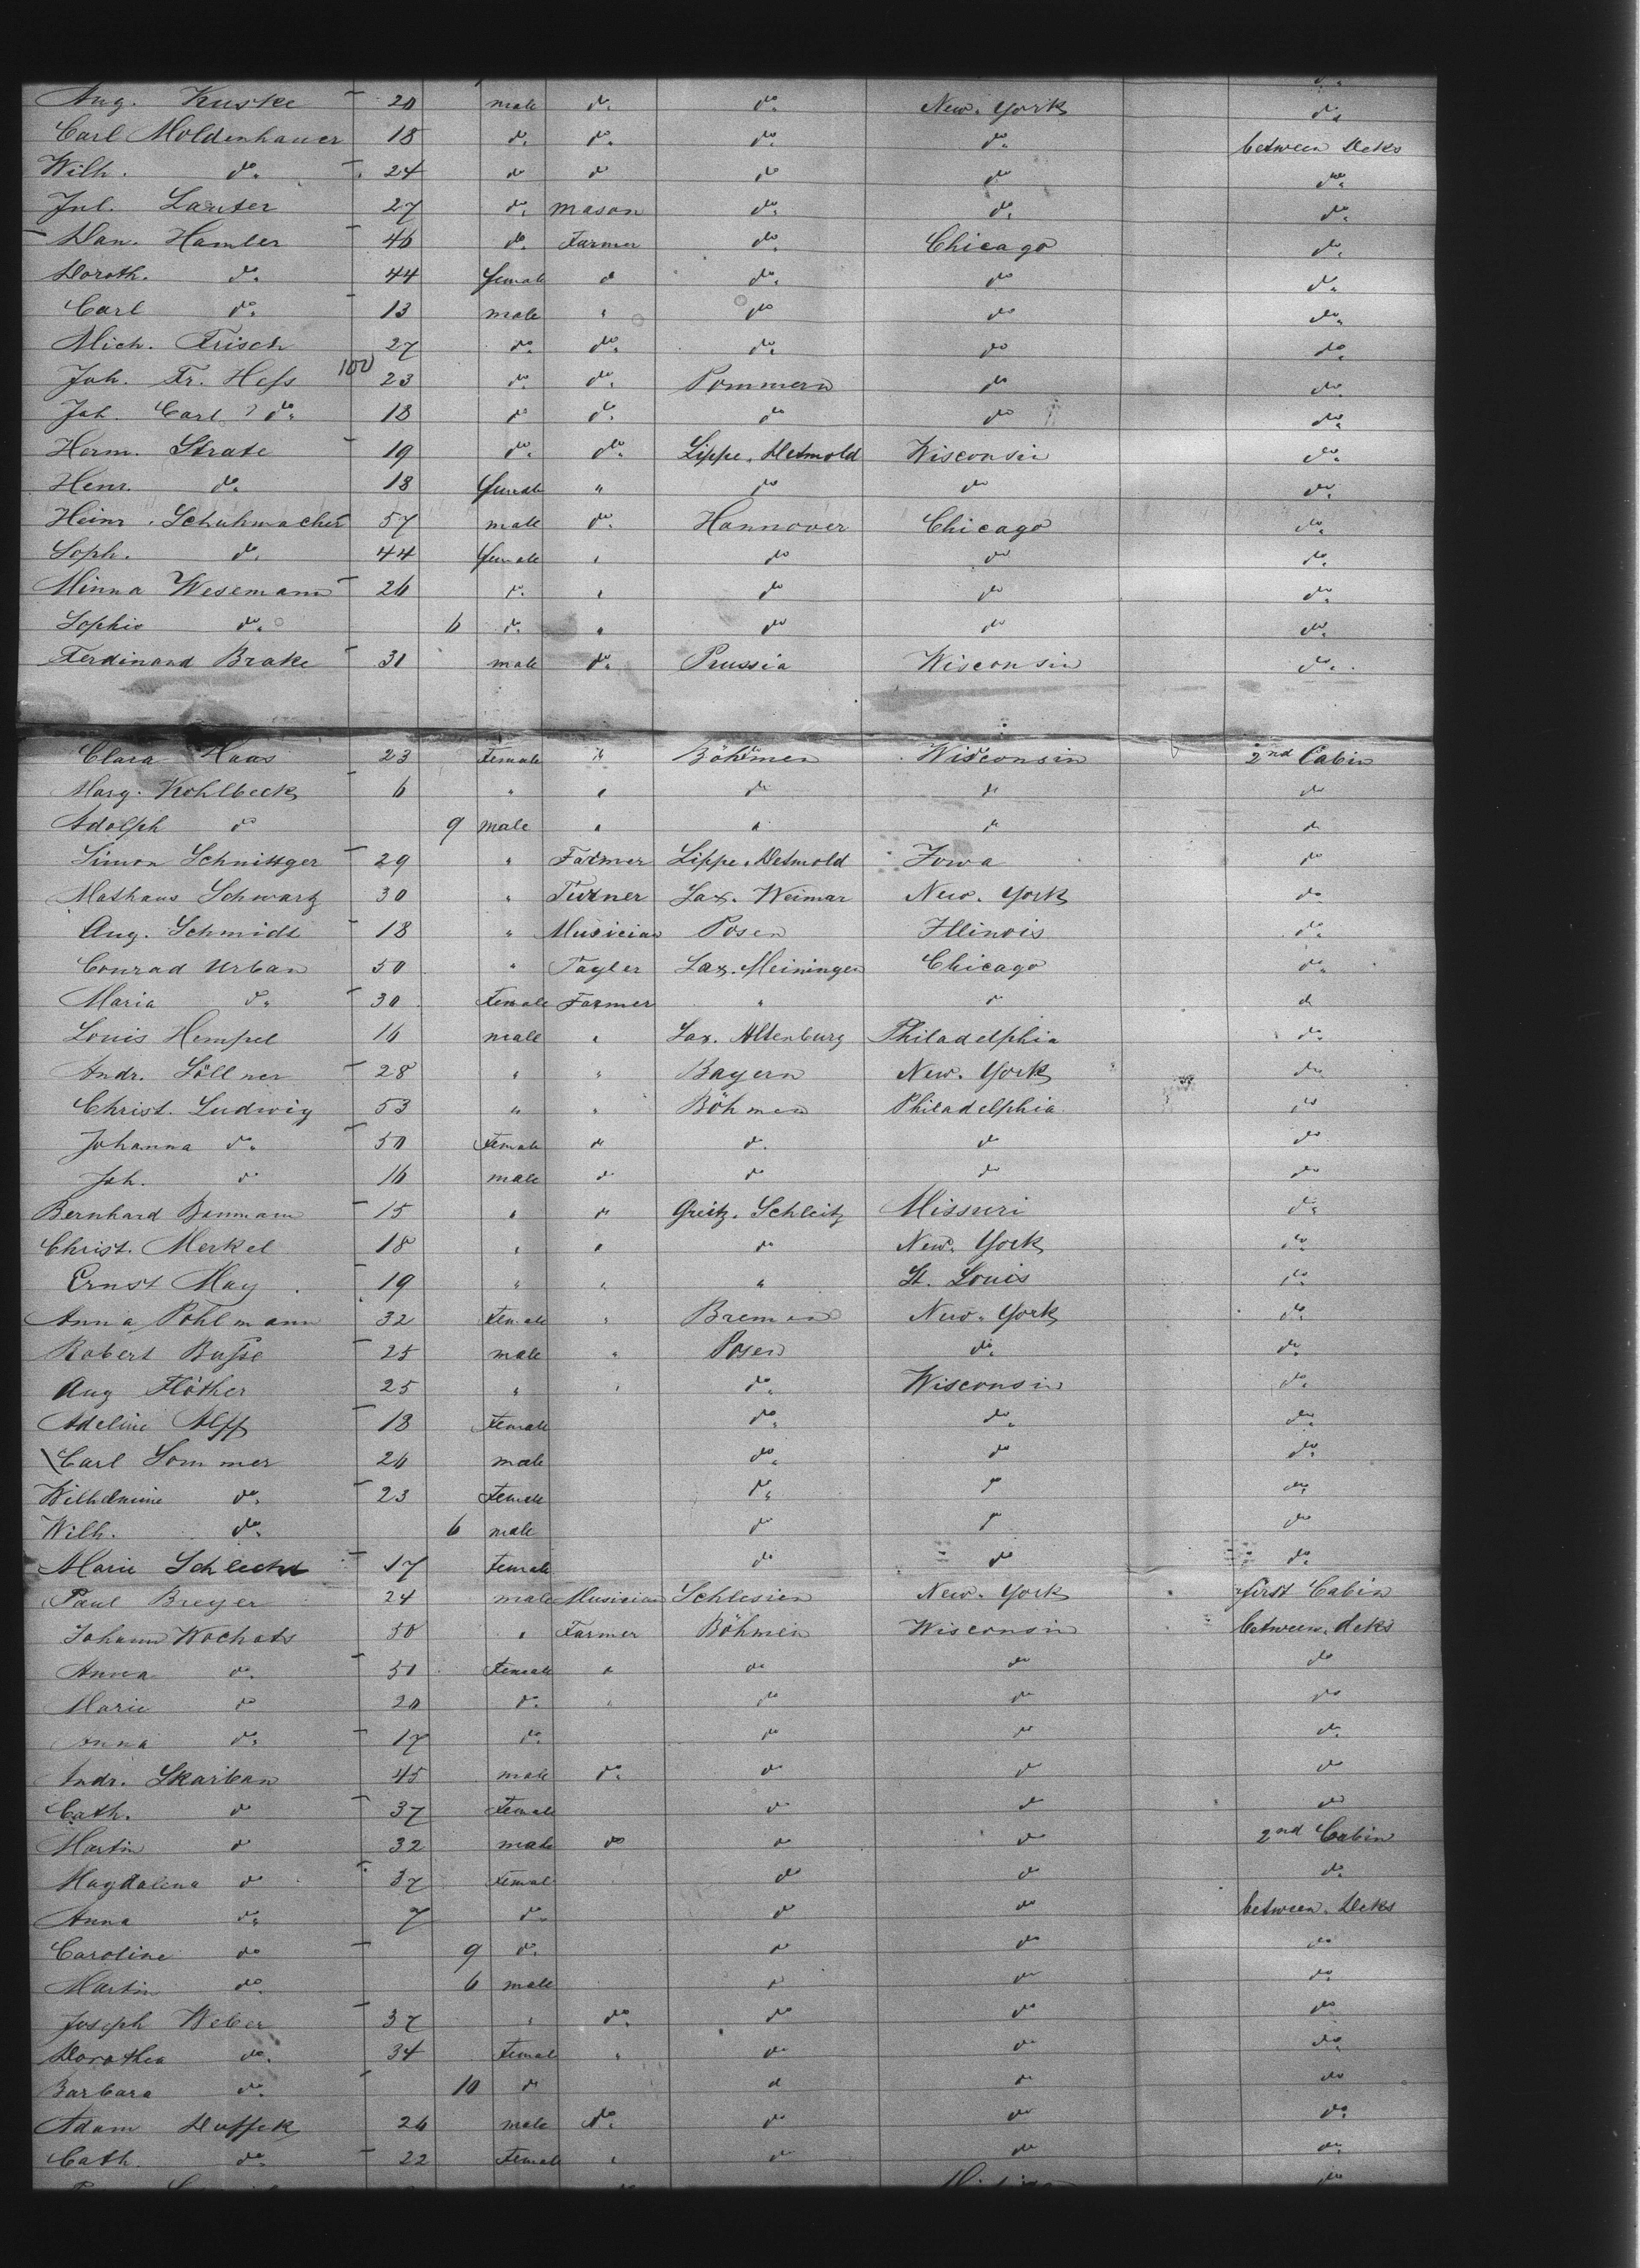 Aug. Kuske 20 male do. do. New. York do.
Carl Moldenhauer 18 do. do. do. do. between Deks
Wilh. do. 24 do do do do do.
Jul. Lauter 27 do. mason do. do. do.
Dan. Hamler 46 do. Farmer do. Chicago do.
Doroth. do. 44 female d do. do do.
Carl do. 13 male " do do do.
Mich. Frisch 27 do. do. do. do do.
Joh. Fr. Hess 100 23 do. do. Pommern do do.
Joh. Carl do. 18 do do. do do do.
Herm. Strate 19 do. do. Lippe. Detmold Wisconsin do.
Henr. do. 18 female " do do do.
Heinr. Schuhmacher 57 male do. Hannover Chicago do.
Soph. do. 44 female " do do do.
Minna Wesemann 26 do. " do do do.
Sophie do. 6 do. " do do do.
Ferdinand Brake 31 male do. Prussia Wisconsin do.
Clara Haas 23 Female " Böhmen Wisconsin 2nd Cabin
Marg. Kohlbeck 6 " " do do do
Adolph do 9 male " " do do
Simon Schnittger 29 " Farmer Lippe. Detmold Iowa do
Mathaus Schwartz 30 " Turner Sax. Weimar New. York do
Aug. Schmidt 18 " Musician Posen Illinois do.
Conrad Urban 50 " Tayler Sax. Meiningen Chicago do.
Maria do. 30 Female Farmer " do do
Louis Hempel 16 male " Sax. Altenburg Philadelphia do.
Andr. Söllner 28 " " Bayern New. York do
Christ. Ludwig 53 " " Böhmen Philadelphia do
Johanna do. 50 Female do do. do do
Joh. do 16 male do do do do
Bernhard 15 " do Greitz. Schleitz Missuri do.
Christ. Merkel 18 " " do New. York do.
Ernst May 19 " " " St. Louis do
Anna Pohlmann 32 Female " Bremen New. York do.
Robert Busse 25 male " Posen do. do.
Aug Flöther 25 " " do. Wisconsin do.
Adeline Alff 18 Female do. do. do.
Carl Sommer 26 male do. do do.
Wilhelmine do. 23 Female do. do do.
Wilh. do. 6 male do do do
Marie Schlecht 17 Female do do do.
Paul Breyer 24 male Musician Schlesien New. York first Cabin
Johann Wochats 50 " Farmer Böhmen Wisconsin between. deks
Anna do. 51 Female " do do do
Marie do 20 do. " do do do
Anna do. 17 do. do do do.
Andr. Skarban 45 male do. do do do
Cath. do 37 Female do do do
Martin do 32 male do do do 2nd Cabin
Magdalena do 37 Femal do do do.
Anna do. 7 do. do do between. Deks
Caroline do 9 do. do do do
Martin do. 6 male do do do.
Joseph Weber 37 " do. do do do
Dorothea do. 34 Femal " do do do.
Barbara do. 10 do d do do
Adam Duffek 26 male do. do do do.
Cath. do. 22 Female " do do do.
do